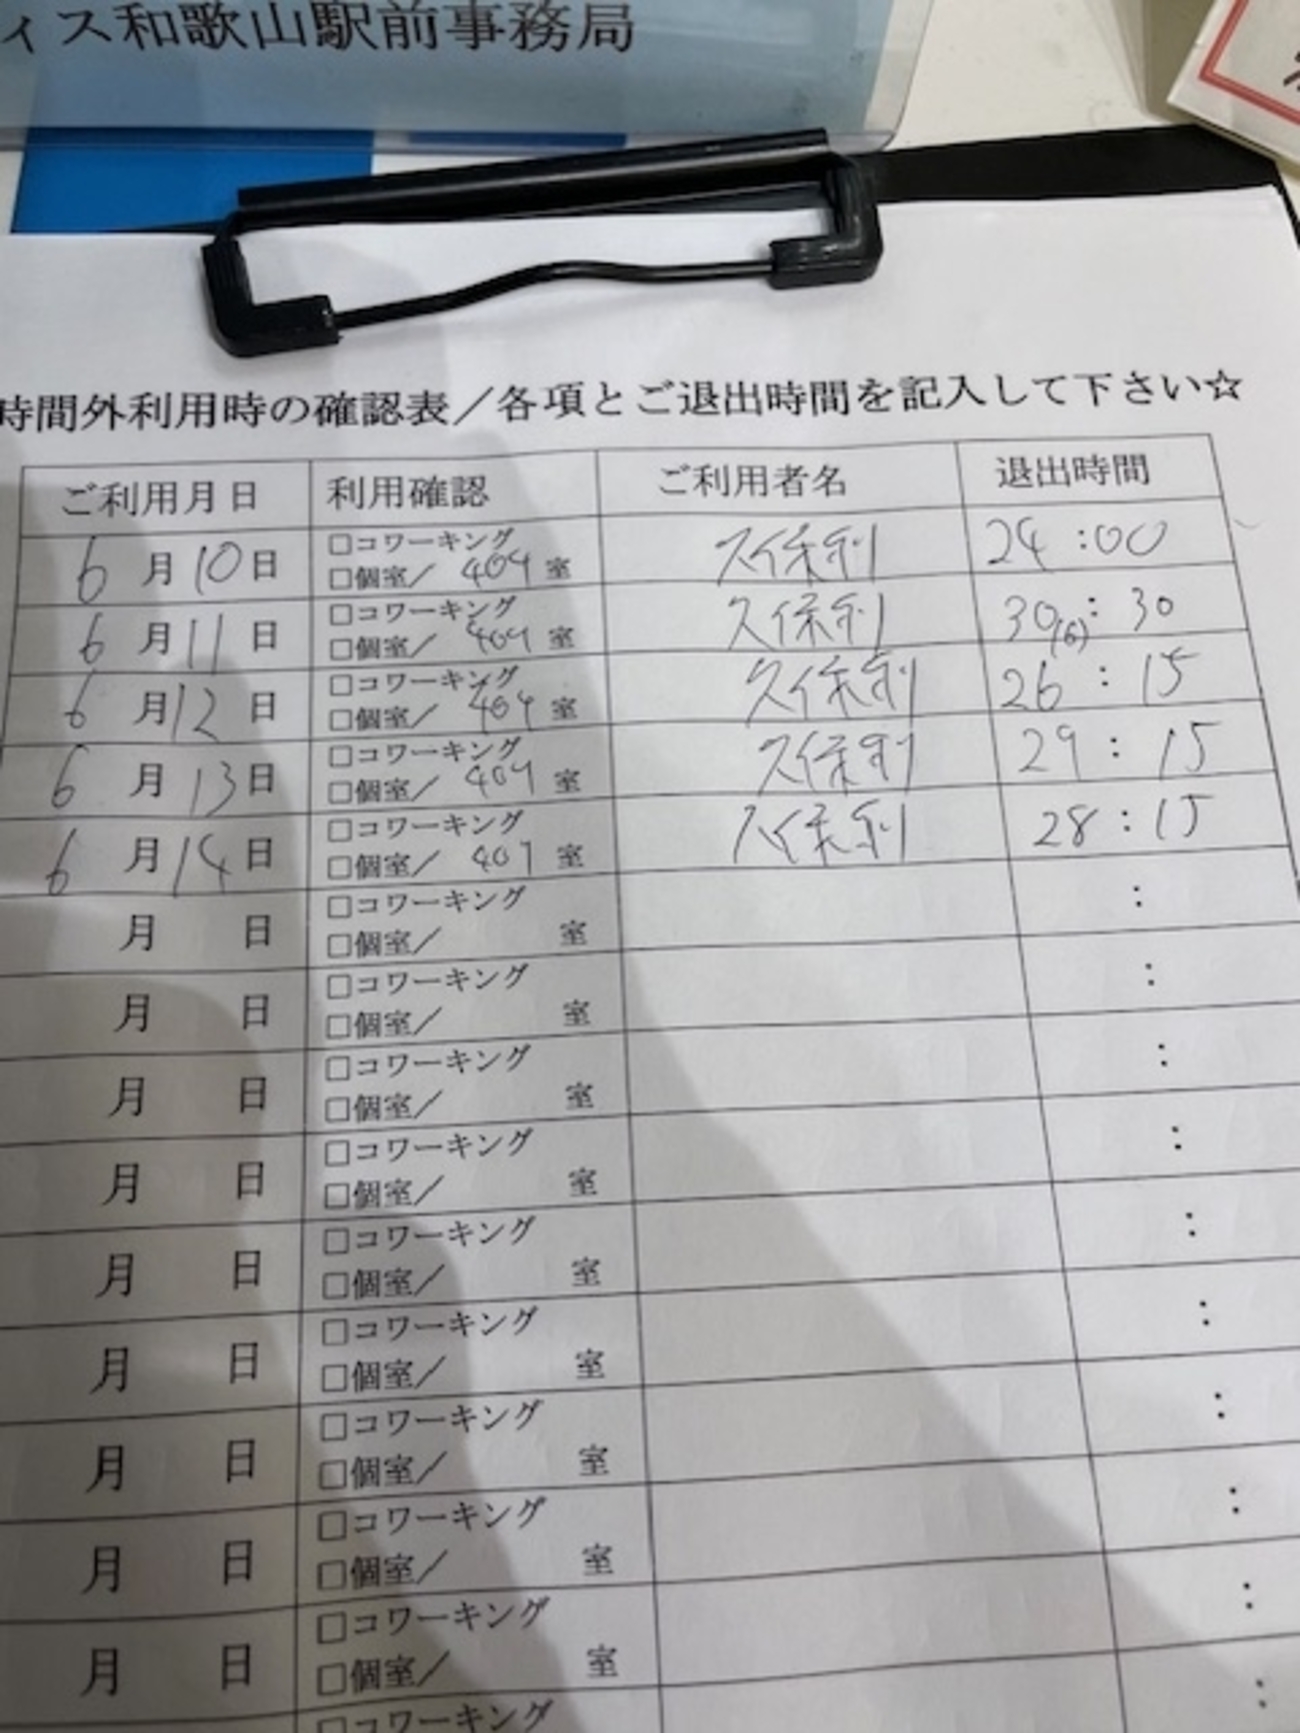 ィス和歌山駅前事務局
時間外利用時の確認表／各項とご退出時間を記入して下さい☆
ご利用月日 利用確認 ご利用者名 退出時間
6月10日 □コワーキング □個室／ 409 室 久保利 24:00
6月11日 □コワーキング □個室／ 409 室 久保利 30(6):30
6月12日 □コワーキング □個室／ 409 室 久保利 26:15
6月13日 □コワーキング □個室／ 409 室 久保利 29:15
6月14日 □コワーキング □個室／ 409 室 久保利 28:15
月 日 □コワーキング □個室／ 室 :
月 日 □コワーキング □個室／ 室 :
月 日 □コワーキング □個室／ 室 :
月 日 □コワーキング □個室／ 室 :
月 日 □コワーキング □個室／ 室 :
月 日 □コワーキング □個室／ 室 :
月 日 □コワーキング □個室／ 室 :
月 日 □コワーキング □個室／ 室 :
月 日 □コワーキング □個室／ 室 :
□コワーキング :